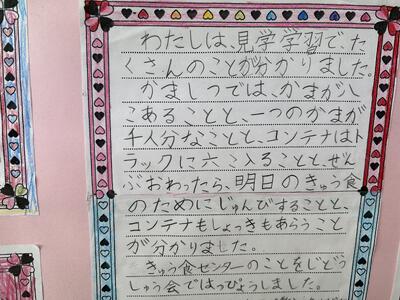 わたしは、見学学習で、た
くさんのことが分かりました。
かましつでは、かまが八
こあることと、一つのかまが
千人分なことと、コンテナはト
ラックに六こ入ることと、ぜん
ぶおわったら、明日のきゅう食
のためにじゅんびすることと、
コンテナもしょっきもあらうこと
が分かりました。
きゅう食センターのことをじどう
しゅう会ではっぴょうしました。